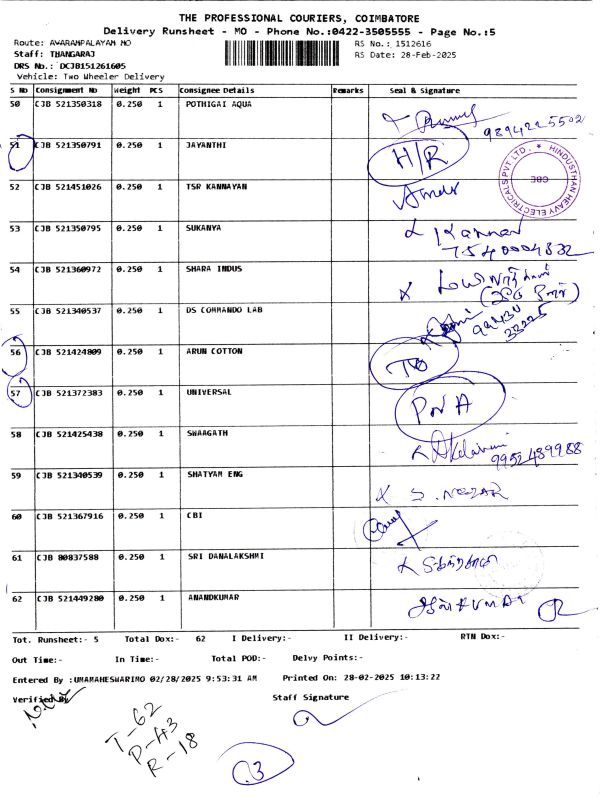 THE PROFESSIONAL COURIERS, COIMBATORE
Delivery Runsheet - MO - Phone No.:0422-3505555 - Page No.:5
Route: AWARAMPALAYAM MO RS No.: 1512616
Staff: THANGARAJ RS Date: 28-Feb-2025
DRS No.: DCJB151261605
Vehicle: Two Wheeler Delivery
S No Consignment No Weight PCS Consignee Details Remarks Seal & Signature
50 CJB 521350318 0.250 1 POTHIGAI AQUA
9894225502
51 CJB 521350791 0.250 1 JAYANTHI H/R
HINDUSTHAN HEAVY ELECTRICALS PVT. LTD. * CBE
52 CJB 521451026 0.250 1 TSR KANNAYAN
53 CJB 521350795 0.250 1 SUKANYA Kannan
7540004832
54 CJB 521360972 0.250 1 SHARA INDUS
55 CJB 521340537 0.250 1 DS COMMANDO LAB
56 CJB 521424809 0.250 1 ARUN COTTON
57 CJB 521372383 0.250 1 UNIVERSAL PNA
58 CJB 521425438 0.250 1 SWAAGATH
9952489988
59 CJB 521340539 0.250 1 SHATYAM ENG
60 CJB 521367916 0.250 1 CBI
61 CJB 80837588 0.250 1 SRI DANALAKSHMI
62 CJB 521449280 0.250 1 ANANDKUMAR
Tot. Runsheet:- 5 Total Dox:- 62 I Delivery:- II Delivery:- RTN Dox:-
Out Time:- In Time:- Total POD:- Delvy Points:-
Entered By :UMAMAHESWARIMO 02/28/2025 9:53:31 AM Printed On: 28-02-2025 10:13:22
Verified By Staff Signature
T-62
P-43
R-18